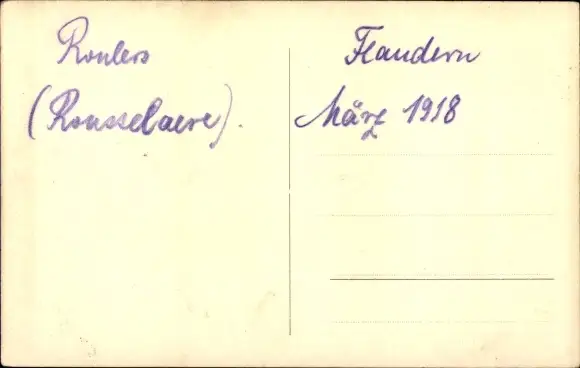 Roulers
(Rousselaere).
Flandern
März 1918